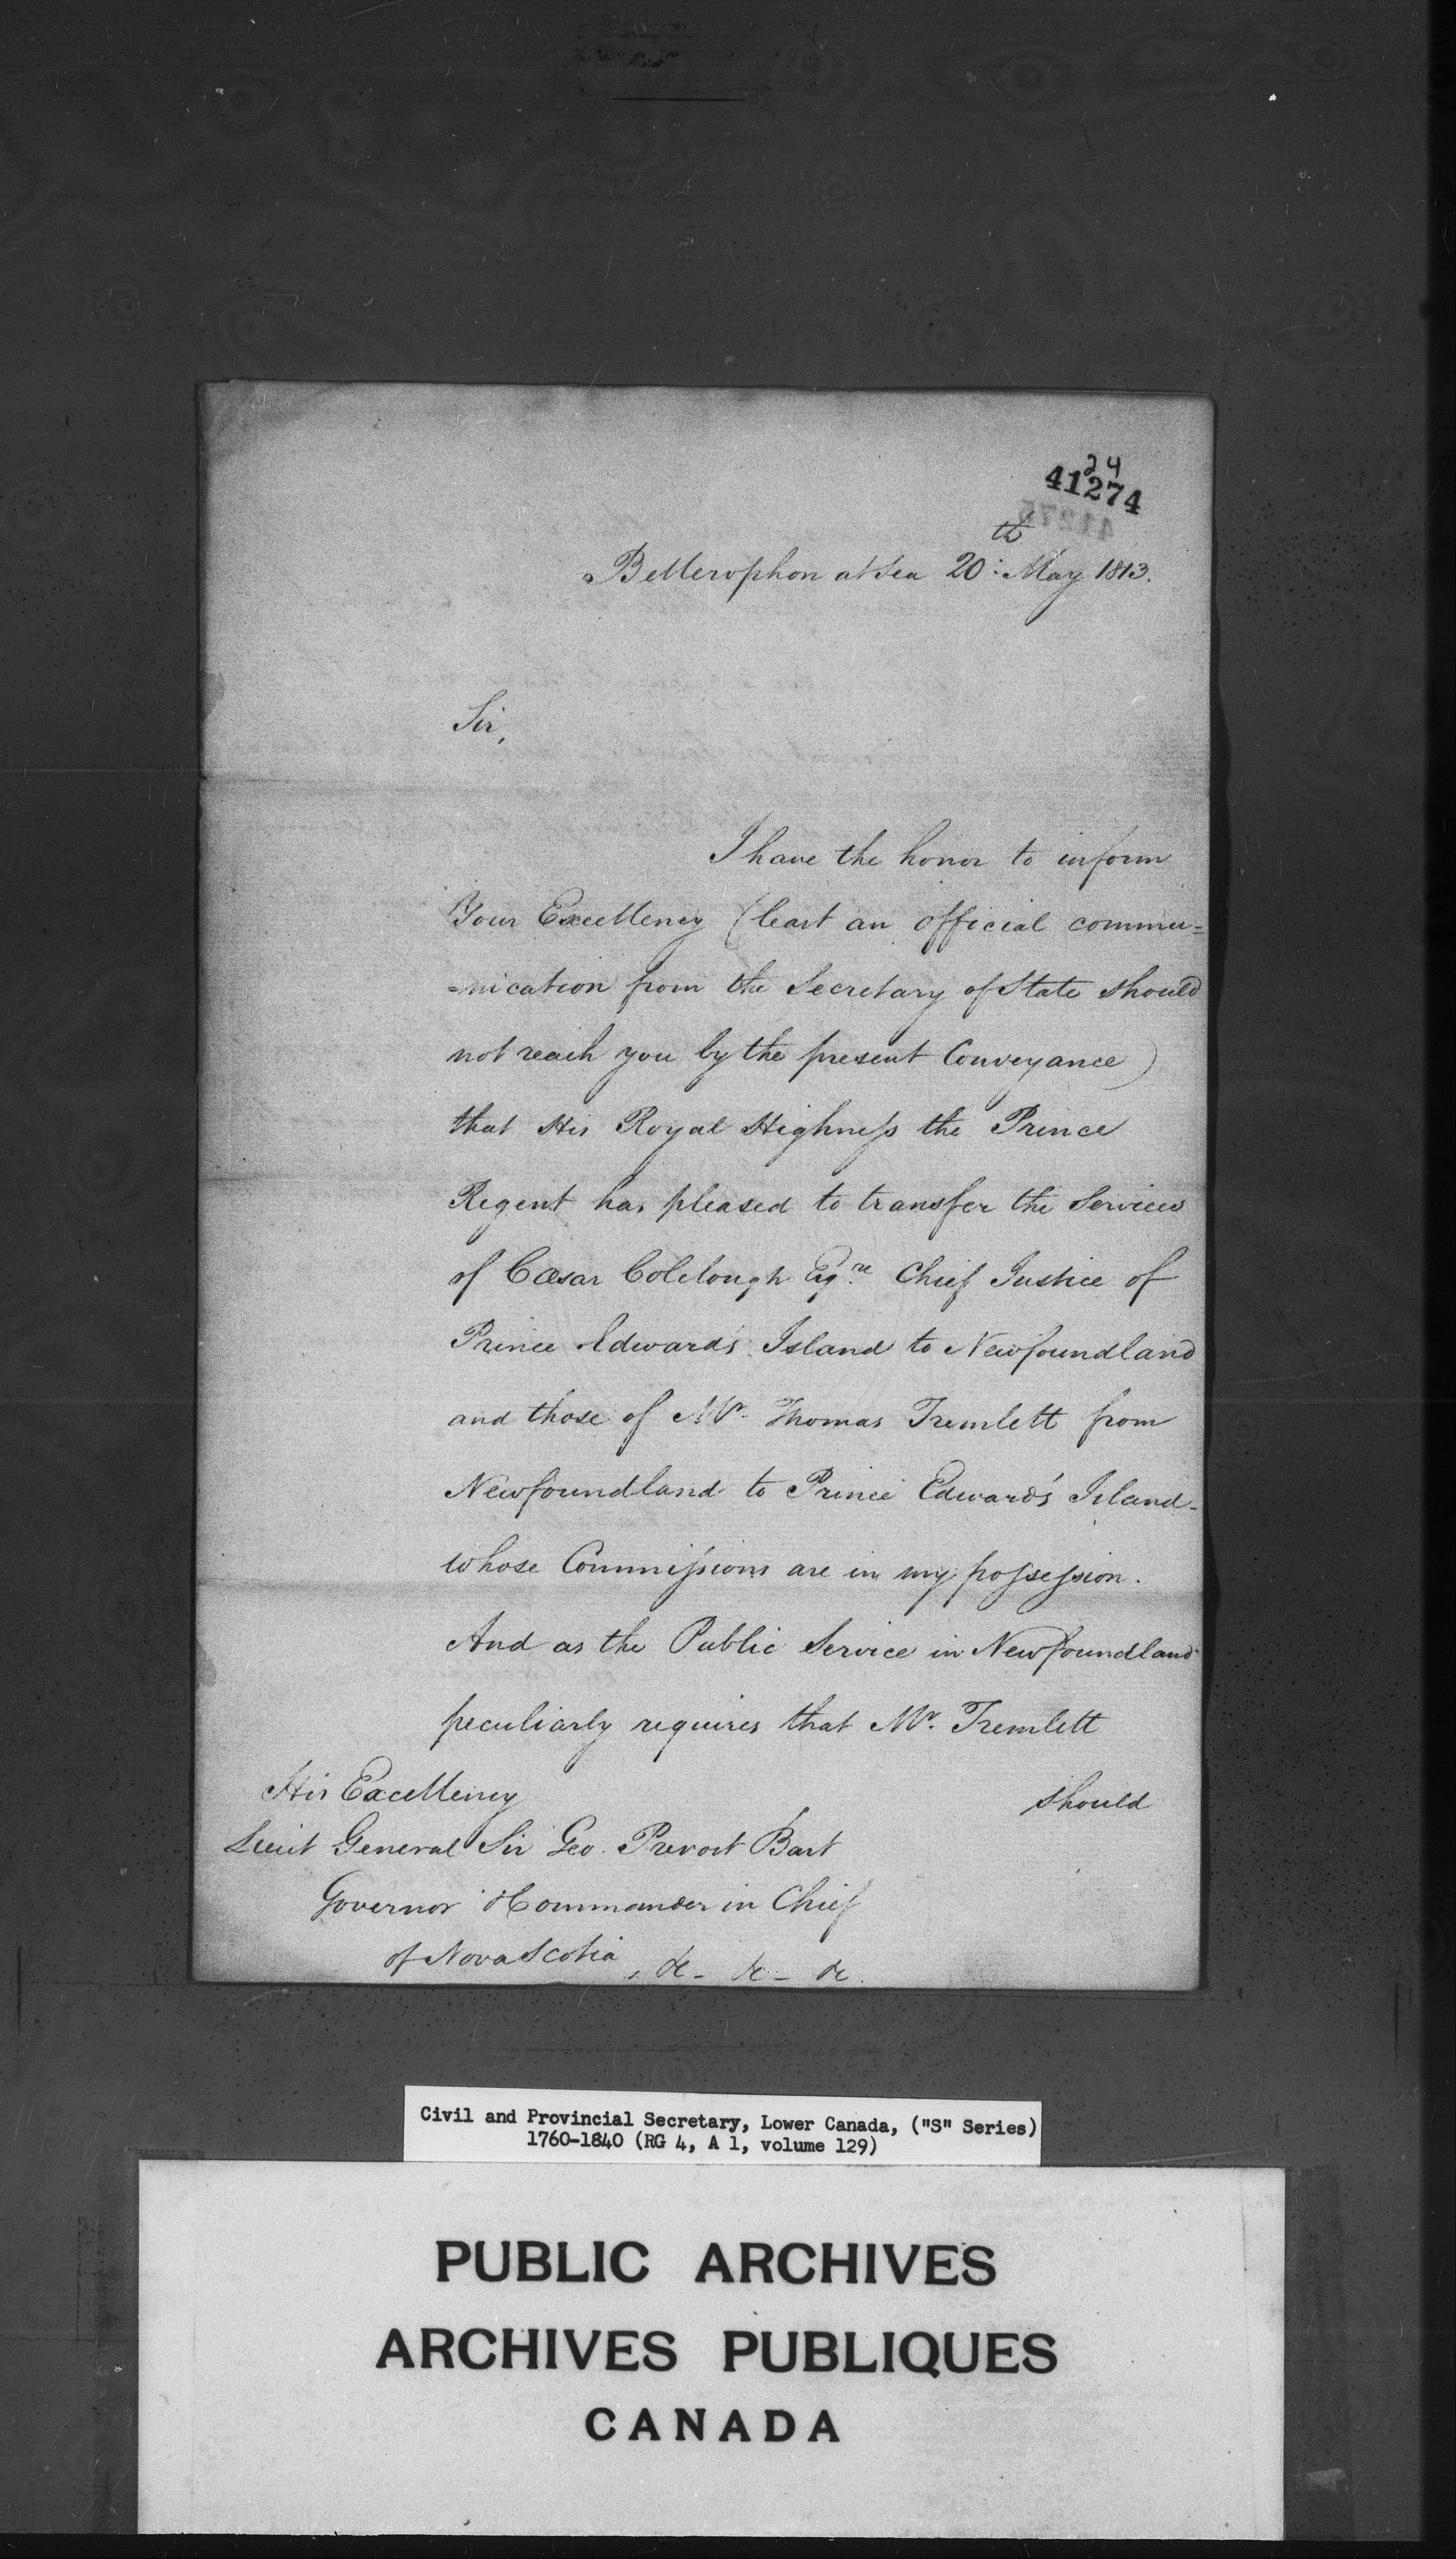 24
41274
Bellerophon at Sea 20th: May 1813.
Sir,
I have the honor to inform
Your Excellency (least an official commu=
=nication from the Secretary of State should
not reach you by the present Conveyance)
that His Royal Highneſs the Prince
Regent has pleased to transfer the Services
of Cæsar Colclough Esqre. Chief Justice of
Prince Edward's Island to Newfoundland
and those of Mr. Thomas Tremlett from
Newfoundland to Prince Edward's Island-
whose Commiſsions are in my poſseſsion.
And as the Public Service in Newfoundland
peculiarly requires that Mr. Tremlett
should
His Excellency
Lieut General Sir Geo. Prevost Bart
Governor & Commander in Chief
of Nova Scotia, &c - &c - &c.
Civil and Provincial Secretary, Lower Canada, ("S" Series)
1760-1840 (RG 4, A 1, volume 129)
PUBLIC ARCHIVES
ARCHIVES PUBLIQUES
CANADA